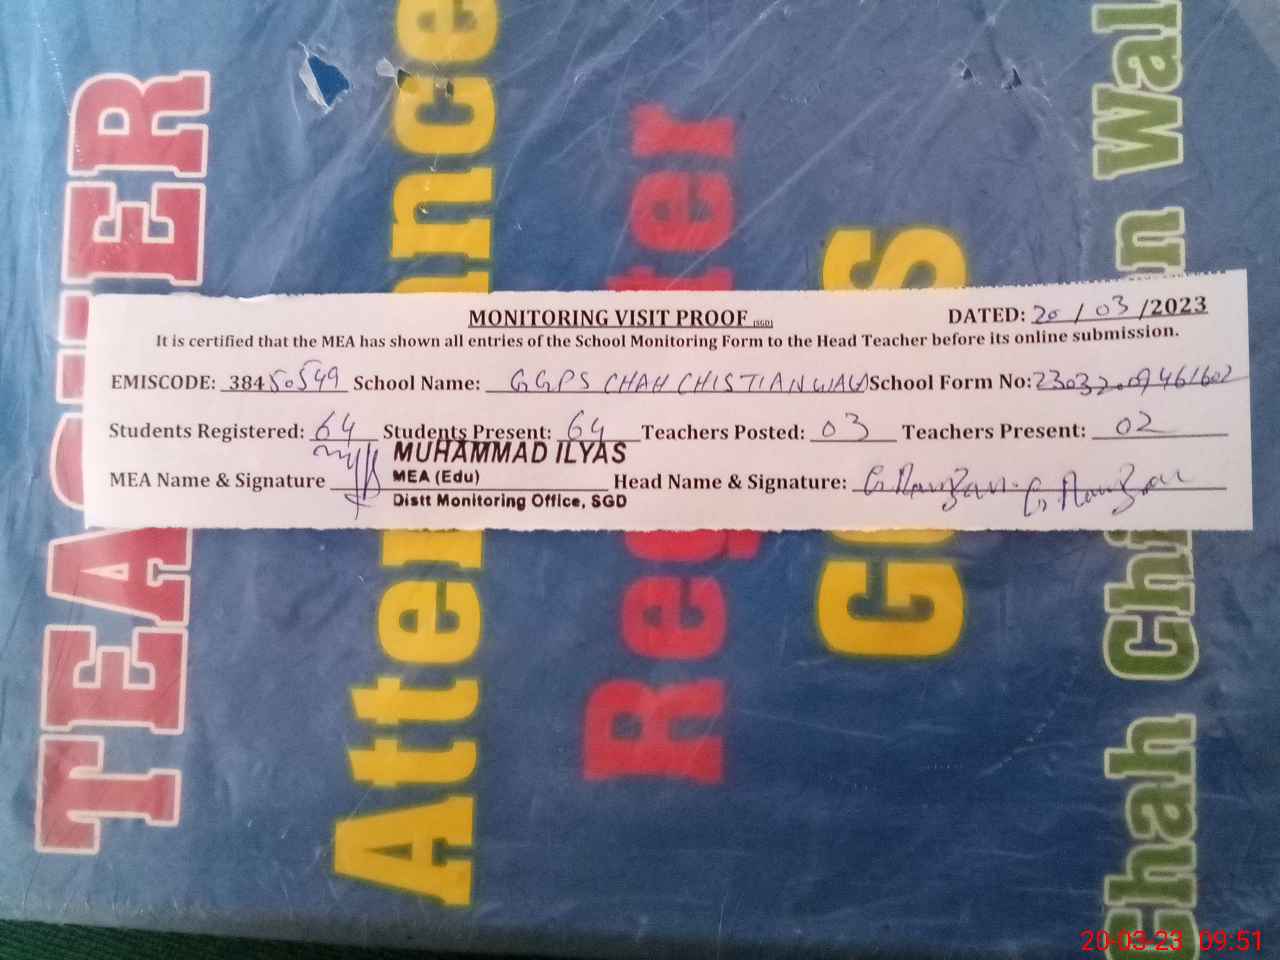 MONITORING VISIT PROOF (SGD)
DATED: 20 / 03 /2023
It is certified that the MEA has shown all entries of the School Monitoring Form to the Head Teacher before its online submission.
EMISCODE: 38450549 School Name: GGPS CHAH CHISTIAN WALA School Form No:
Students Registered: 64 Students Present: 64 Teachers Posted: 03 Teachers Present: 02
MUHAMMAD ILYAS
MEA Name & Signature MEA (Edu) Head Name & Signature: G Ramzan. G Ramzan
Distt Monitoring Office, SGD
TEACHER
Attendance
Register
Chah Chi n Wal
20-03-23 09:51